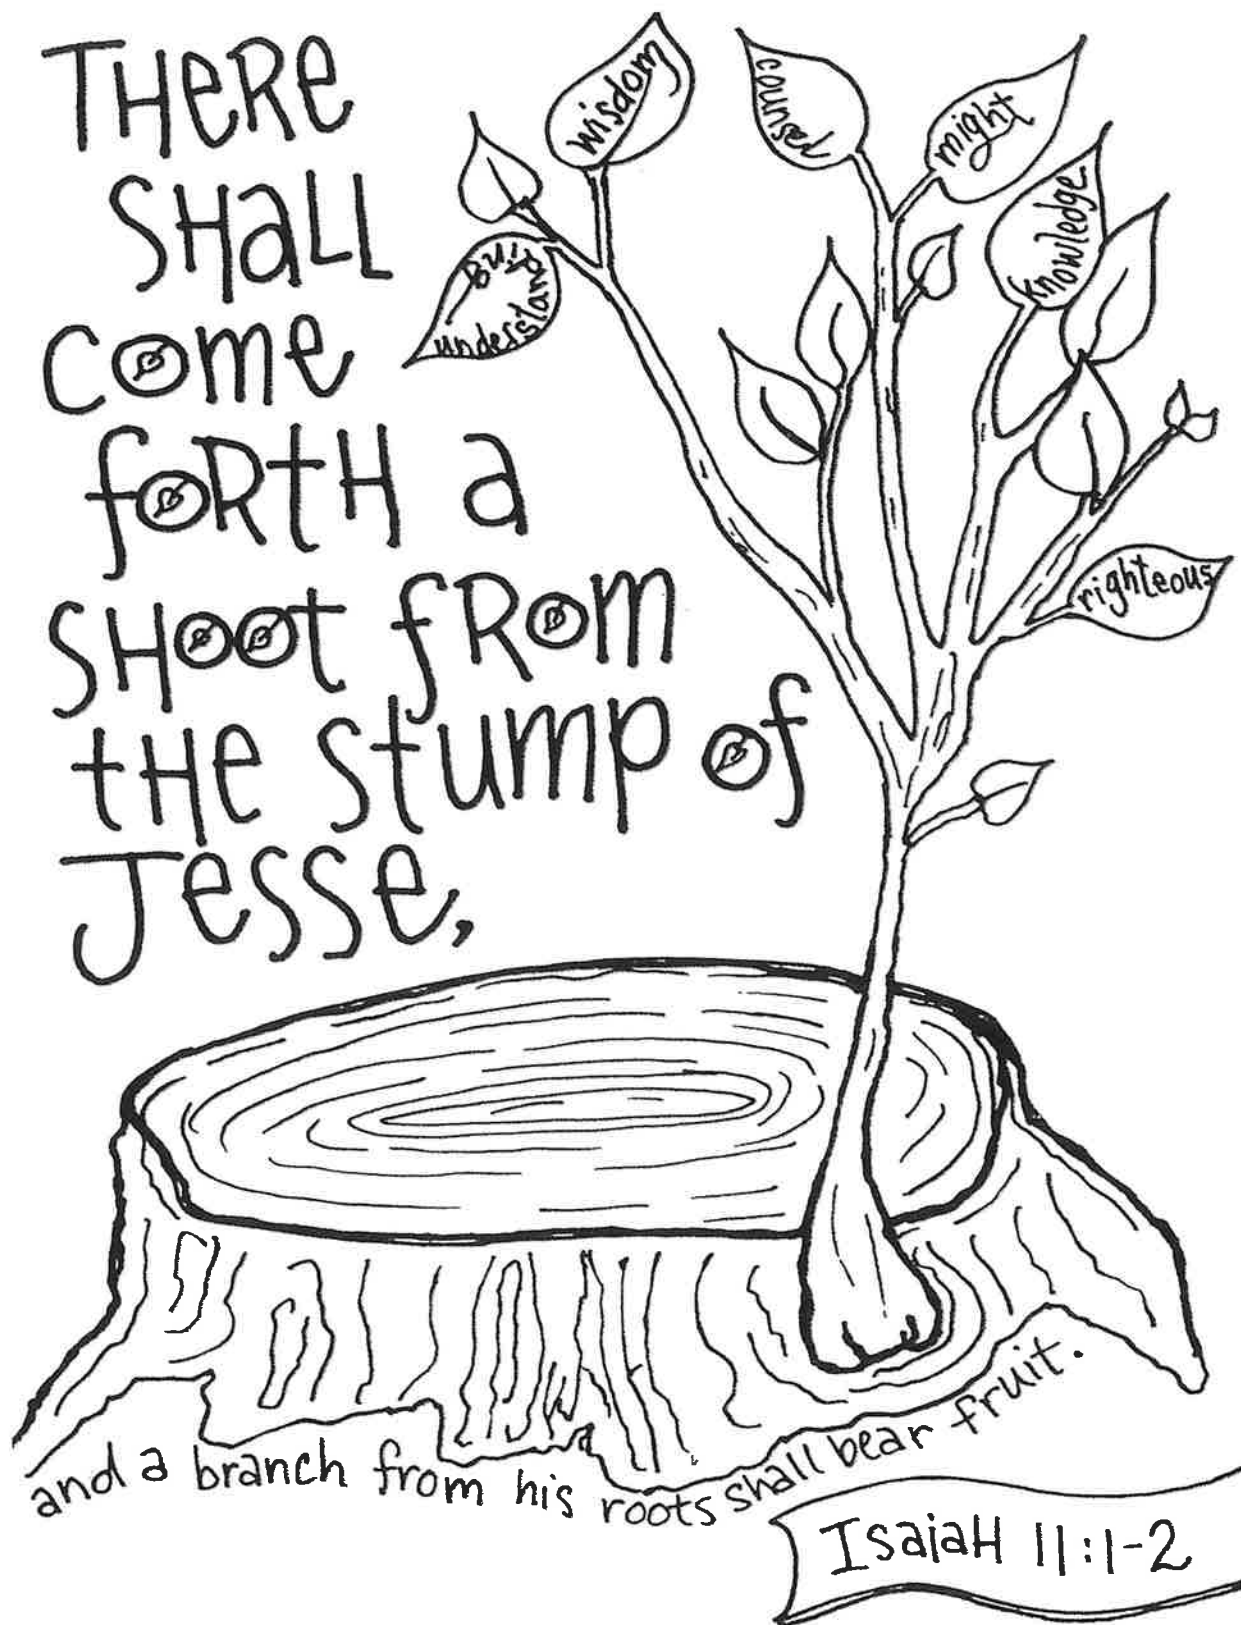 THeRe
SHaLL
come
foRtH a
SHoot fRom
tHe stump of
Jesse,
wisdom
counsel
might
Knowledge
understanding
righteous
and a branch from his roots shall bear fruit.
IsaiaH 11:1-2